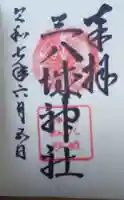 奉拝
三八城神社
令和七年六月五日